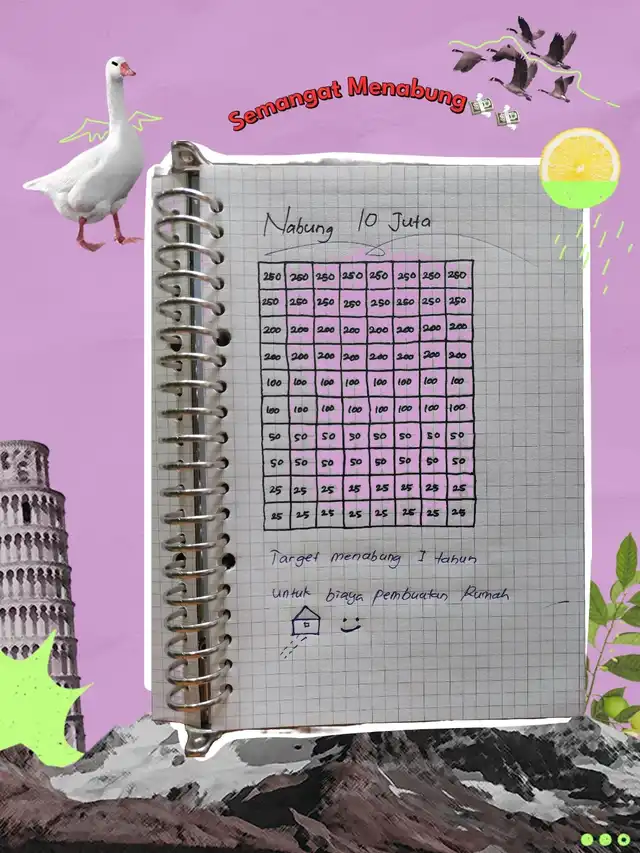 Semangat Menabung
Nabung 10 Juta
250 250 250 250 250 250 250 250
250 250 250 250 250 250 250 250
200 200 200 200 200 200 200 200
200 200 200 200 200 200 200 200
100 100 100 100 100 100 100 100
100 100 100 100 100 100 100 100
50 50 50 50 50 50 50 50
50 50 50 50 50 50 50 50
25 25 25 25 25 25 25 25
25 25 25 25 25 25 25 25
Target menabung 1 tahun
untuk biaya pembuatan Rumah